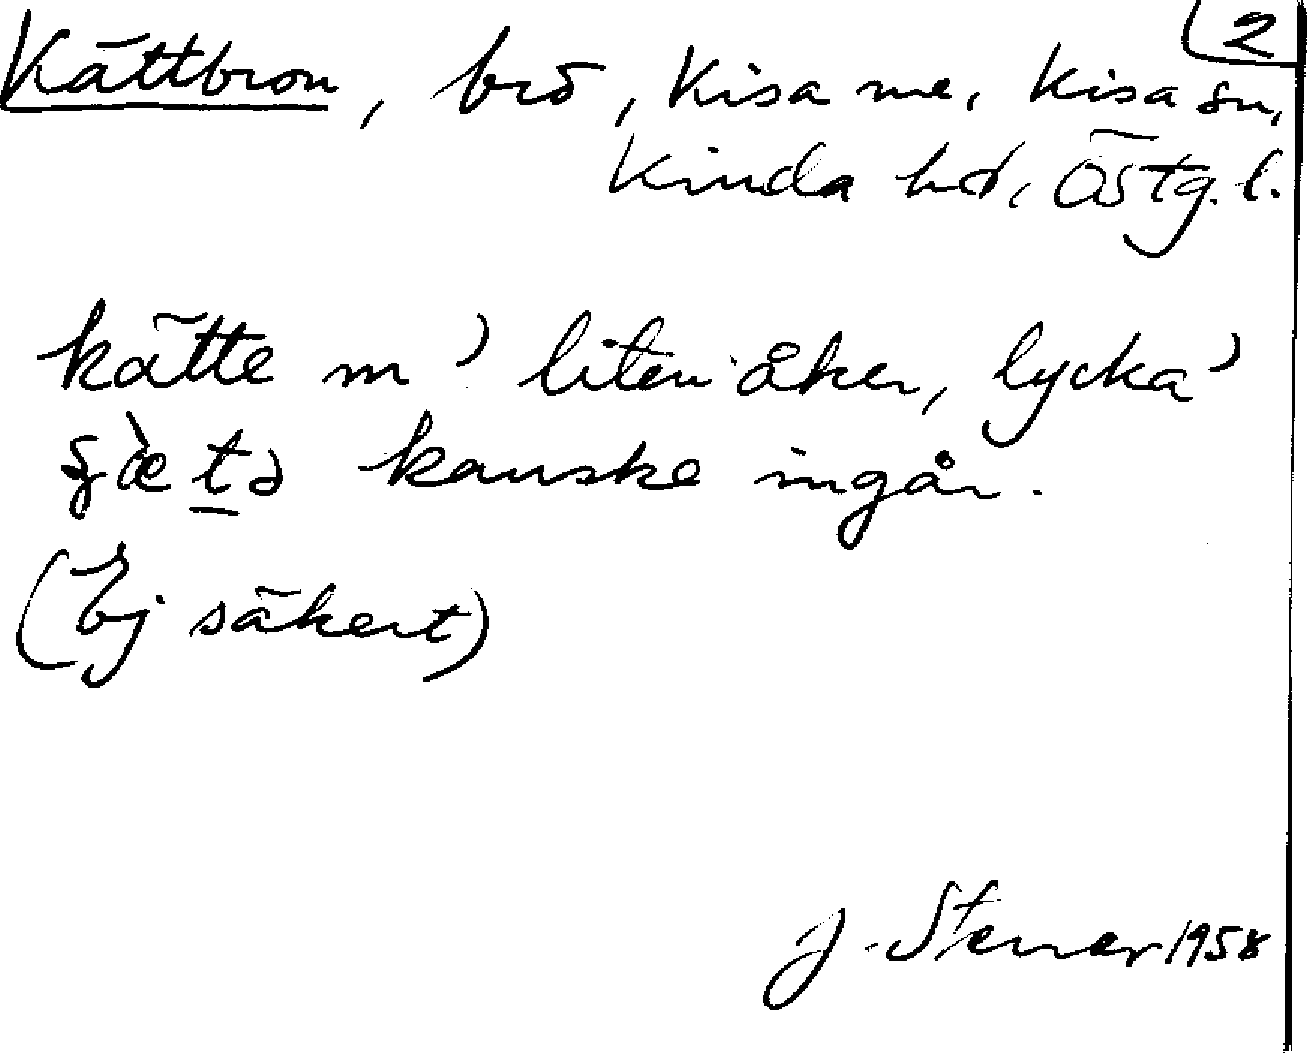 2
Kättbron, bro, Kisa me, Kisa sn,
Kinda hd, Östg. l.
kätte m 'liten åker, lycka'
kanske ingår.
(Ej säkert)
J. Stenar 1958